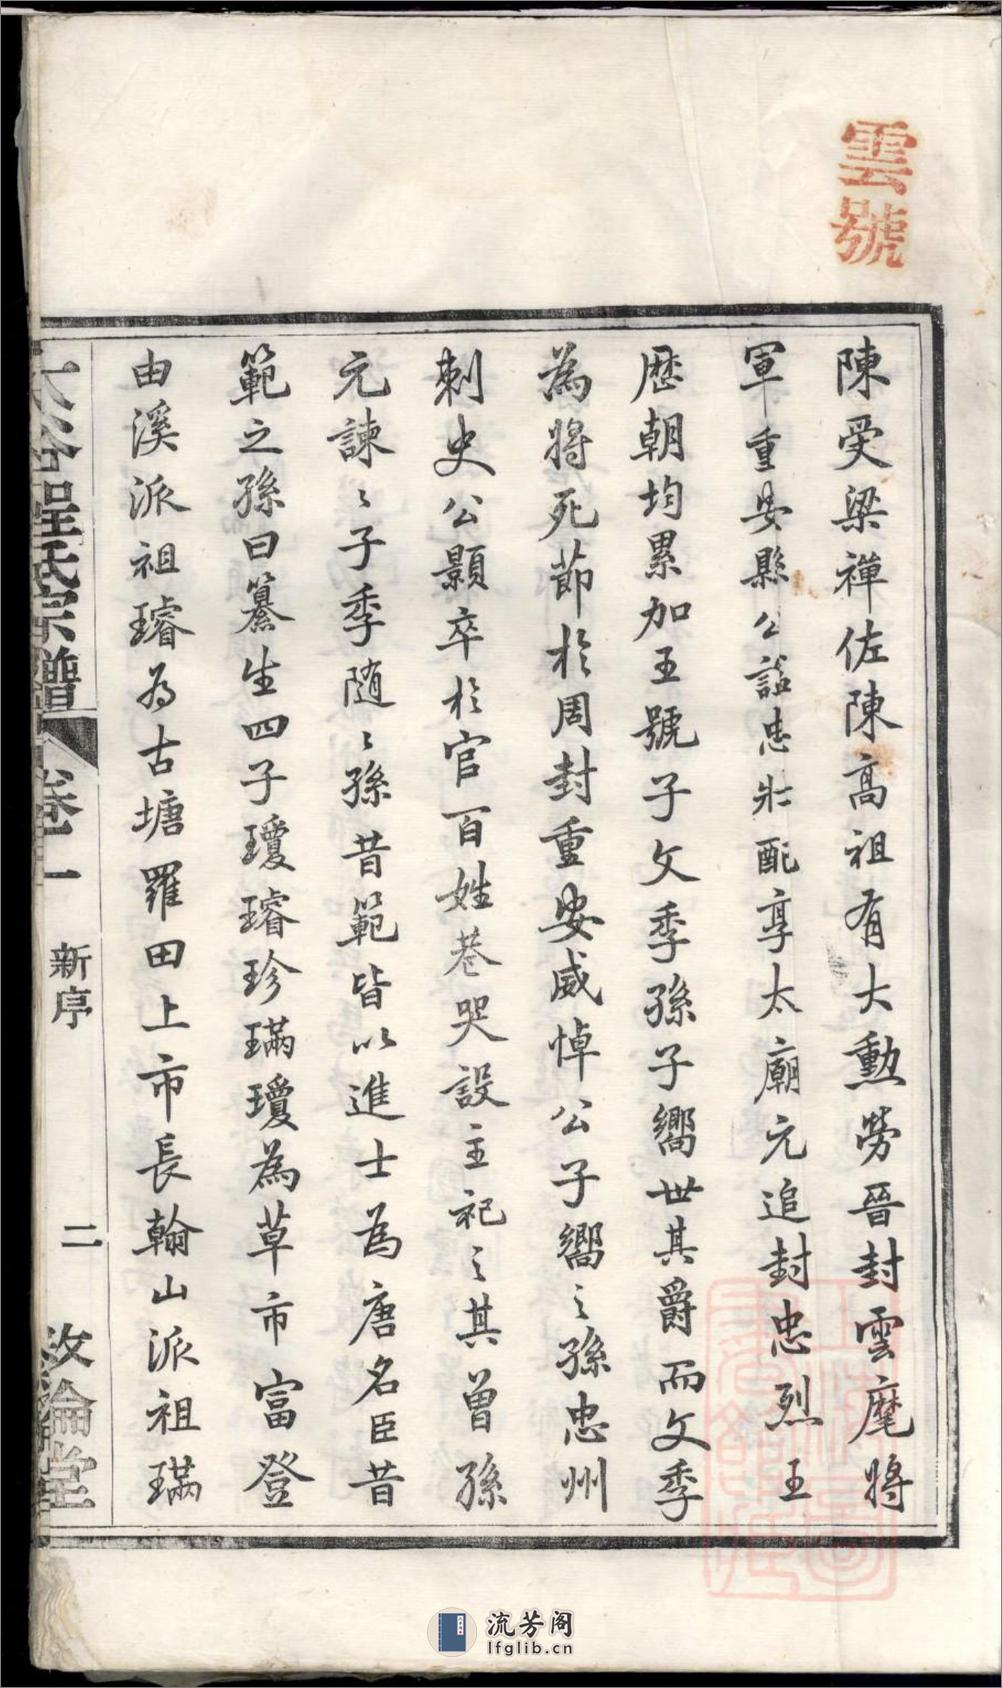 雲號
陳受梁禪佐陳高祖有大勲勞晉封雲麾將
軍重安縣公諡忠壯配享太廟元追封忠烈王
歷朝均累加王號子文季孫子嚮世其爵而文季
為將死節於周封重安威悼公子嚮之孫忠州
刺史公顥卒於官百姓巷哭設主祀之其曾孫
元諫諫子季随随孫昔範皆以進士為唐名臣昔
範之孫曰纂生四子瓊璿珍璊瓊為草市富登
由溪派祖璿為古塘羅田上市長翰山派祖璊
程氏宗譜
卷一
新序
二
敘倫堂
流芳阁
lfglib.cn